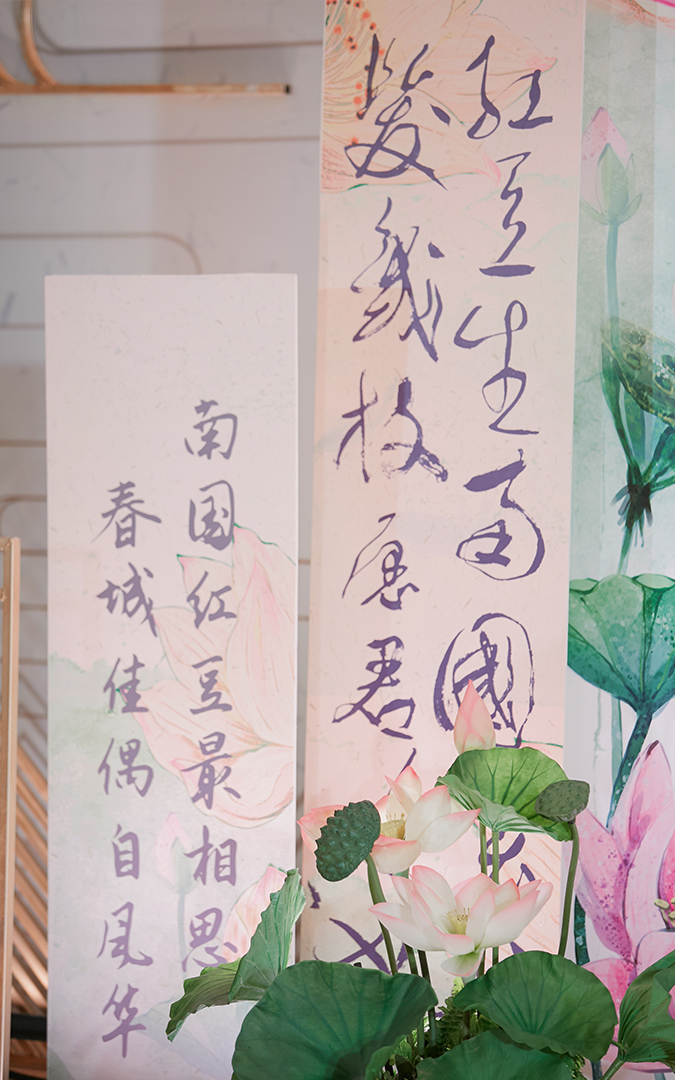 红豆生南國
發幾枝愿君
南国红豆最相思
春城佳偶自风华